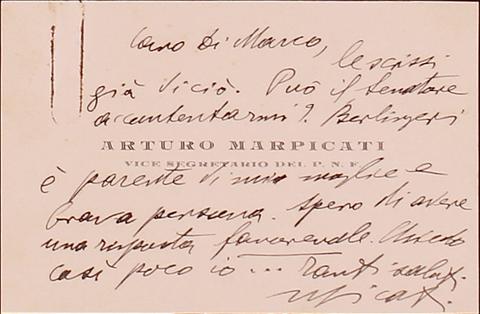 Caro Di Marco,
le scissi
già di ciò. Può il Senatore
accontentarmi? Berlingeri
ARTURO MARPICATI
VICE SEGRETARIO DEL P. N. F.
è parente di mia moglie e
brava persona. Spero di avere
una risposta favorevole. Chiedo
così poco io ... Tanti saluti.